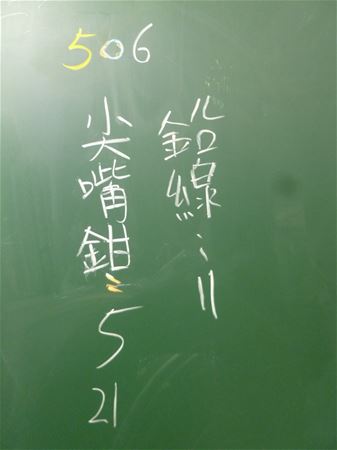 506
鉛線：11
尖嘴鉗：5
21